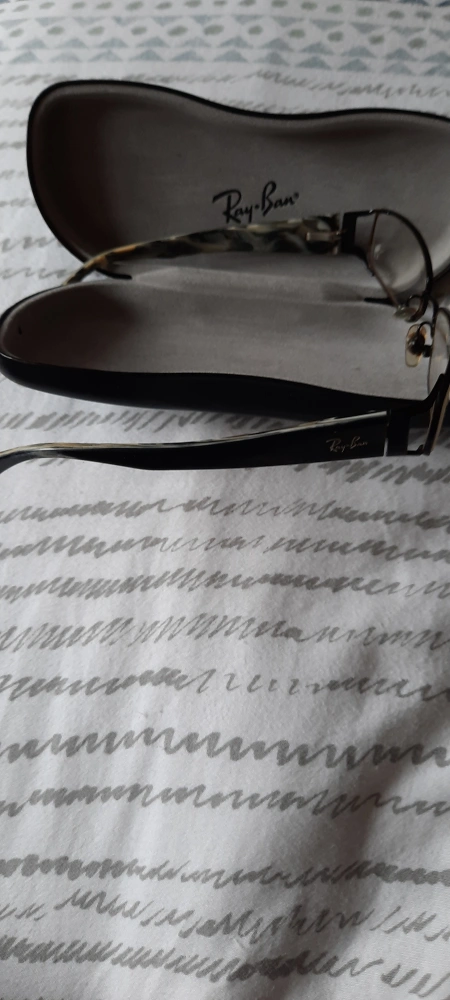 Ray-Ban
Ray-Ban